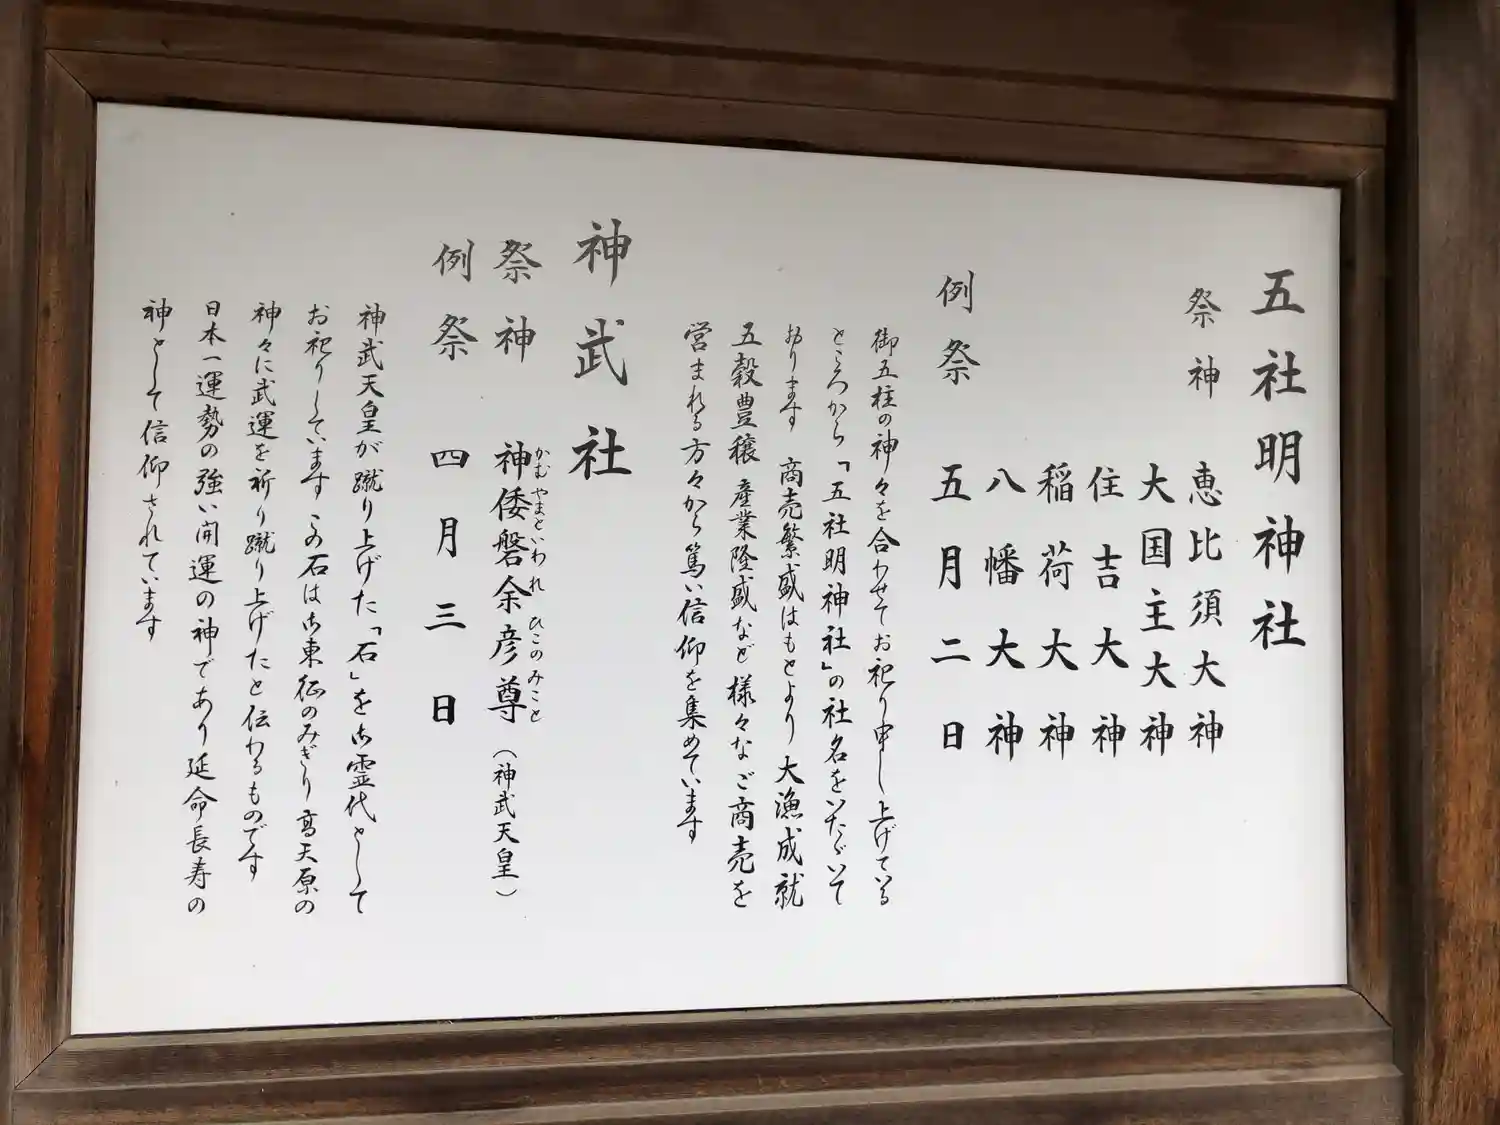 五社明神社
祭神 恵比須大神
大国主大神
住吉大神
稲荷大神
八幡大神
例祭 五月二日
御五柱の神々を合わせてお祀り申し上げている
ところから「五社明神社」の社名をいたゞいて
おります 商売繁盛はもとより大漁成就
五穀豊穣産業隆盛など様々なご商売を
営まれる方々から篤い信仰を集めています
神武社
祭神 神倭磐余彦尊(神武天皇)
かむやまといわれ ひこのみこと
例祭 四月三日
神武天皇が蹴り上げた「石」を御霊代として
お祀りしています この石は御東征のみぎり高天原の
神々に武運を祈り蹴り上げたと伝わるものです
日本一運勢の強い開運の神であり延命長寿の
神として信仰されています